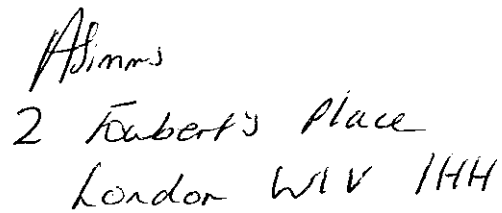 A Simms
2 Foubert's Place
London W1V 1HH